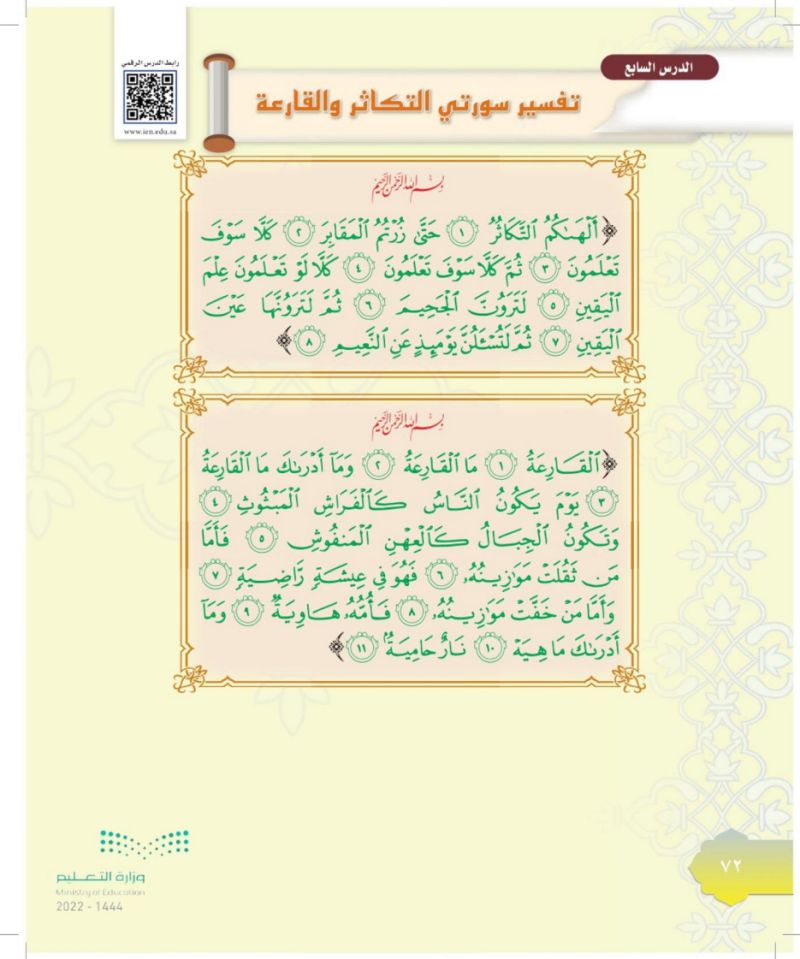 رابط الدرس الرقمي
www.ien.edu.sa
الدرس السابع
تفسير سورتي التكاثر والقارعة
بِسْمِ اللَّهِ الرَّحْمَٰنِ الرَّحِيمِ
﴿ أَلْهَىٰكُمُ التَّكَاثُرُ ١ حَتَّىٰ زُرْتُمُ الْمَقَابِرَ ٢ كَلَّا سَوْفَ
تَعْلَمُونَ ٣ ثُمَّ كَلَّا سَوْفَ تَعْلَمُونَ ٤ كَلَّا لَوْ تَعْلَمُونَ عِلْمَ
الْيَقِينِ ٥ لَتَرَوُنَّ الْجَحِيمَ ٦ ثُمَّ لَتَرَوُنَّهَا عَيْنَ
الْيَقِينِ ٧ ثُمَّ لَتُسْـَٔلُنَّ يَوْمَئِذٍ عَنِ النَّعِيمِ ٨ ﴾
بِسْمِ اللَّهِ الرَّحْمَٰنِ الرَّحِيمِ
﴿ الْقَارِعَةُ ١ مَا الْقَارِعَةُ ٢ وَمَآ أَدْرَىٰكَ مَا الْقَارِعَةُ
٣ يَوْمَ يَكُونُ النَّاسُ كَالْفَرَاشِ الْمَبْثُوثِ ٤
وَتَكُونُ الْجِبَالُ كَالْعِهْنِ الْمَنفُوشِ ٥ فَأَمَّا
مَن ثَقُلَتْ مَوَٰزِينُهُۥ ٦ فَهُوَ فِي عِيشَةٍ رَّاضِيَةٍ ٧
وَأَمَّا مَنْ خَفَّتْ مَوَٰزِينُهُۥ ٨ فَأُمُّهُۥ هَاوِيَةٌ ٩ وَمَآ
أَدْرَىٰكَ مَا هِيَهْ ١٠ نَارٌ حَامِيَةٌ ١١ ﴾
٧٢
وزارة التعليم
Ministry of Education
2022 - 1444